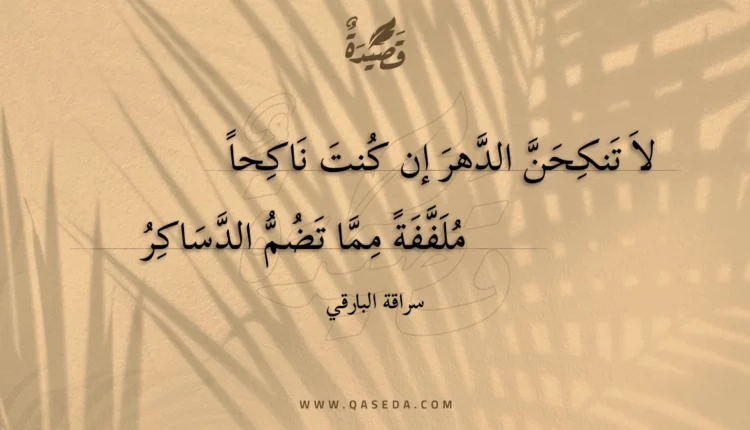 قَصِيْدَةٌ
لاَ تَنكِحَنَّ الدَّهرَ إن كُنتَ نَاكِحاً
مُلَفَّفَةً مِمَّا تَضُمُّ الدَّسَاكِرُ
سراقة البارقي
WWW.QASEDA.COM